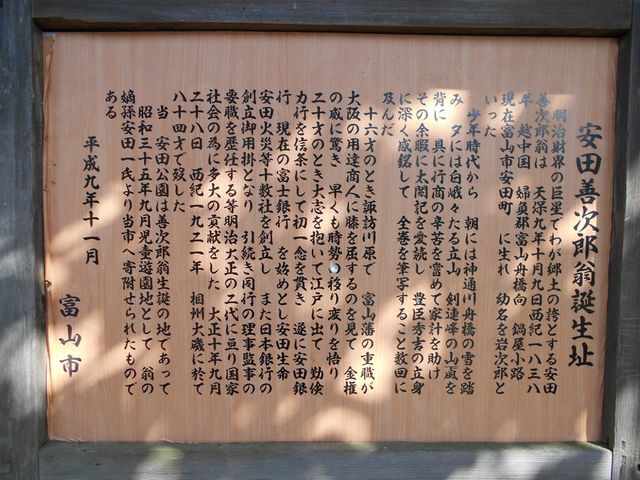 安田善次郎翁誕生址
明治財界の巨星でわが郷土の誇とする安田
善次郎翁は 天保九年十月九日西紀一八三八
年 越中国 婦負郡富山舟橋向 鍋屋小路
現在富山市安田町 に生れ 幼名を岩次郎と
いった
少年時代から 朝には神通川舟橋の雪を踏
み 夕には白峨々たる立山 剣連峰の山嵐を
背に 具に行商の辛苦を嘗めて家計を助け
その余暇に太閤記を愛読し 豊臣秀吉の立身
に深く感銘して 全巻を筆写すること数回に
及んだ
十六才のとき諏訪川原で 富山藩の重職が
大阪の用達商人に膝を屈するのを見て 金権
の威に驚き 早くも時勢の移り変りを悟り
二十才のとき大志を抱いて江戸に出て 勤倹
力行を信条にして初一念を貫き 遂に安田銀
行 現在の富士銀行 を始めとし安田生命
安田火災等十数社を創立し また日本銀行の
創立御用掛となり 引続き同行の理事監事の
要職を歴任する等明治大正の二代に亘り国家
社会の為に多大の貢献をした 大正十年九月
二十八日 西紀一九二一年 相州大磯に於て
八十四才で歿した
当 安田公園は善次郎翁生誕の地であって
昭和三十五年九月児童遊園地として 翁の
嫡孫安田一氏より当市へ寄附せられたもので
ある
平成九年十一月
富山市